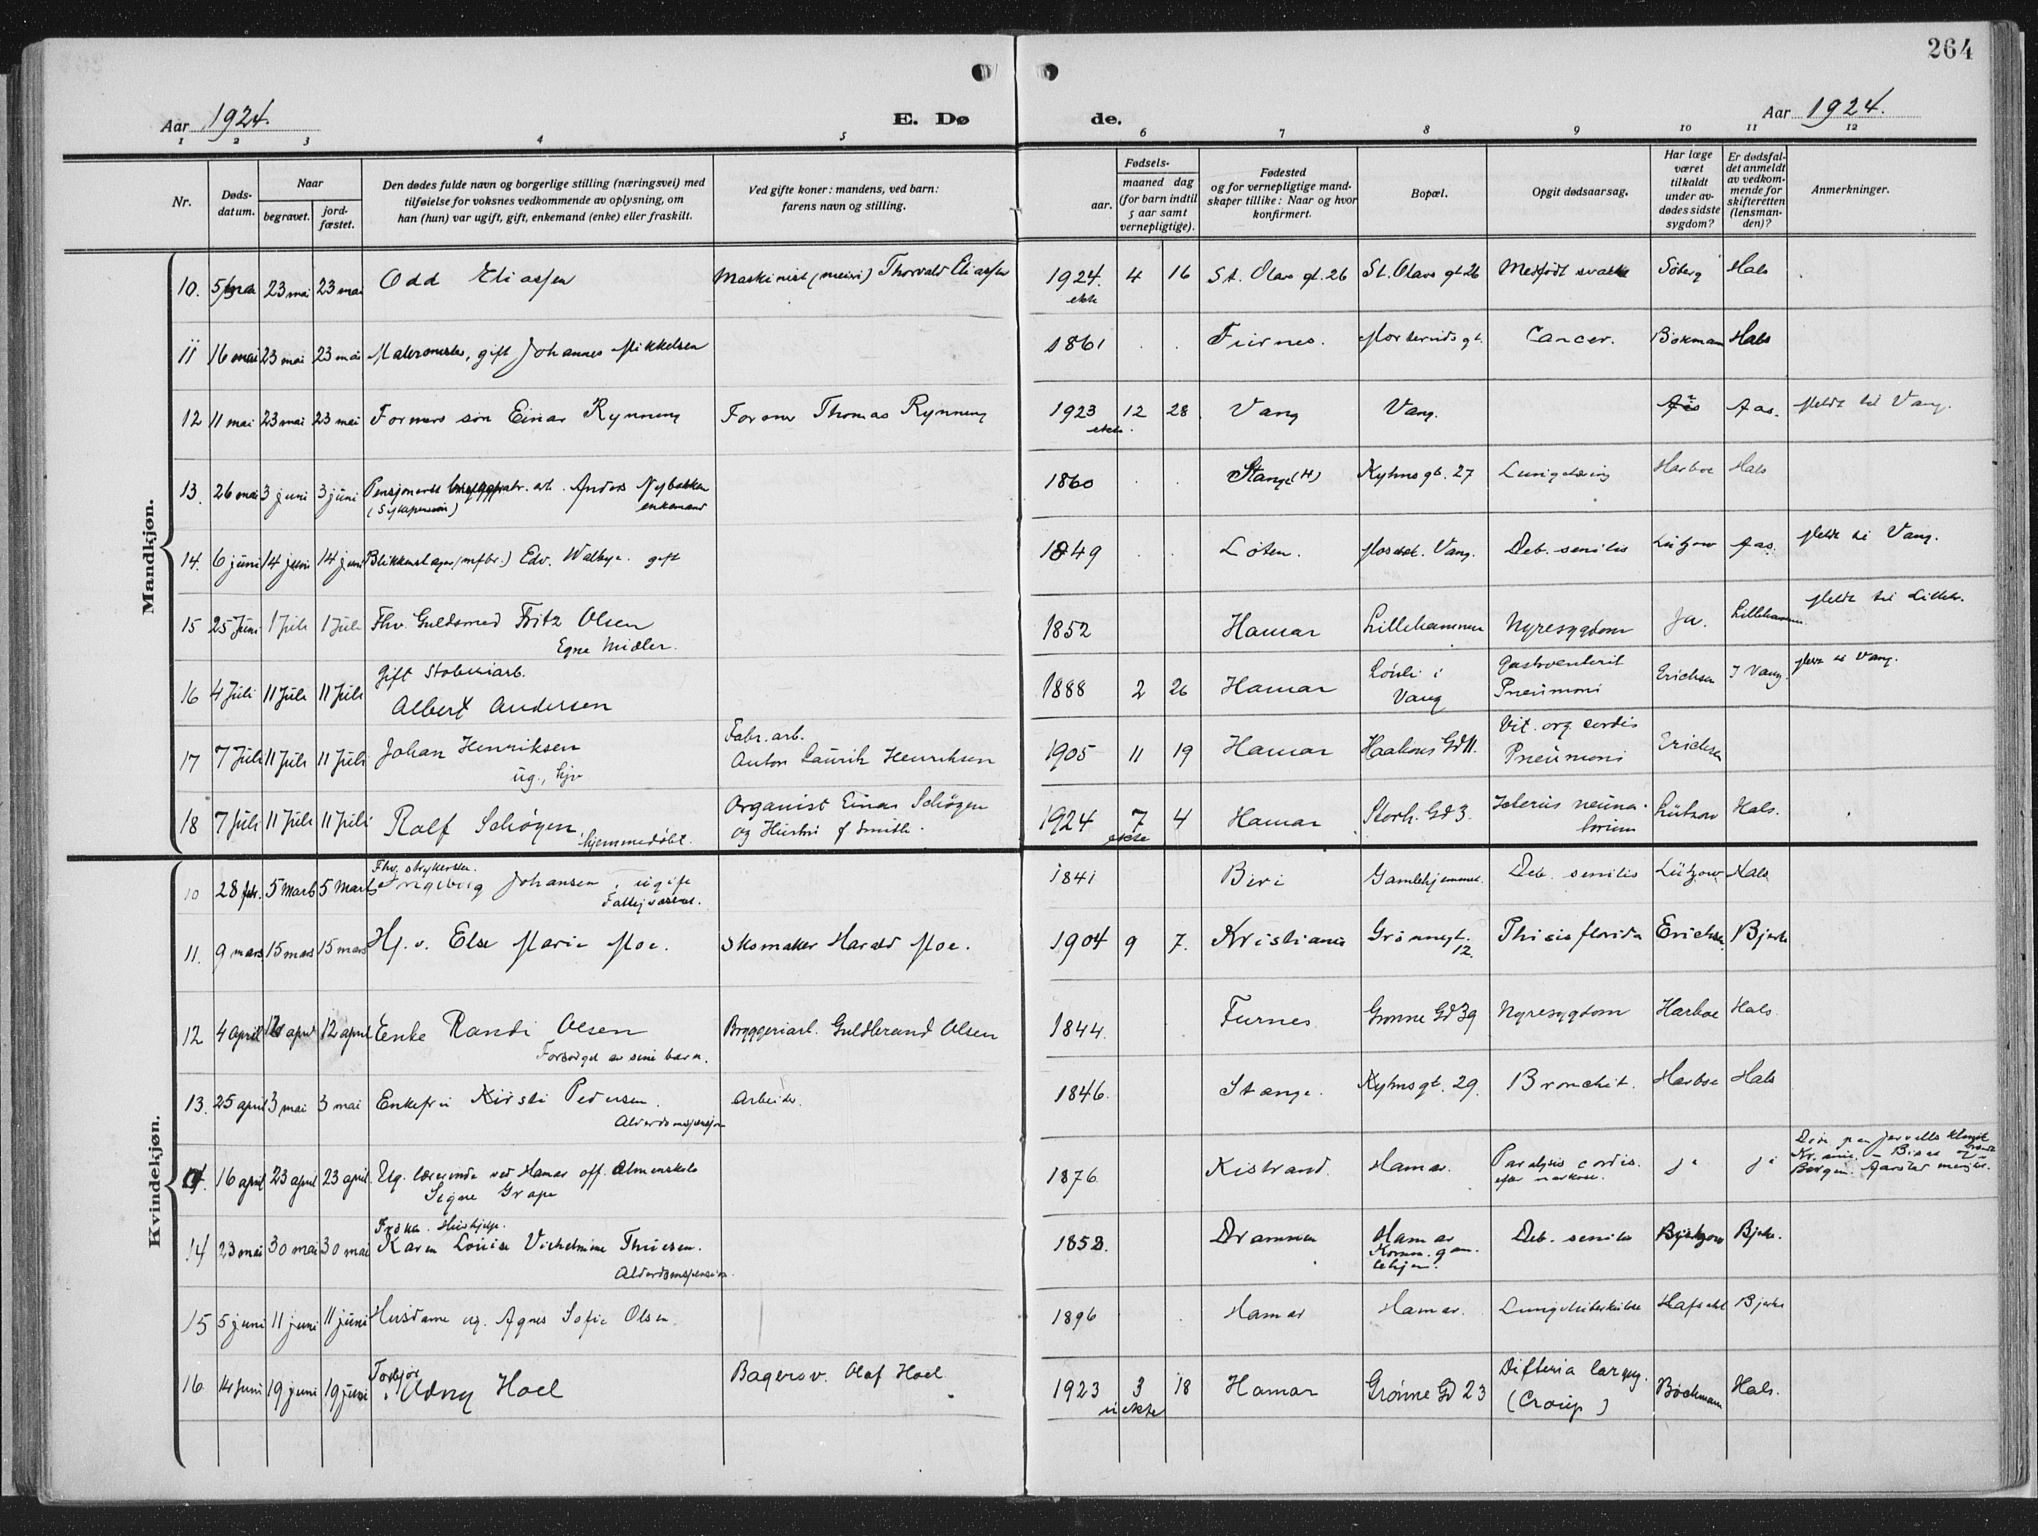 264
Aar 1924.
E. Dø de.
Aar 1924.
1 2 3 4 5 6 7 8 9 10 11 12
Nr.
Døds-
datum.
Naar
begravet.
jord-
fæstet.
Den dødes fulde navn og borgerlige stilling (næringsvei) med
tilføielse for voksnes vedkommende av oplysning, om
han (hun) var ugift, gift, enkemand (enke) eller fraskilt.
Ved gifte koner: mandens, ved barn:
farens navn og stilling.
Fødsels-
aar.
maaned dag
(for barn indtil
5 aar samt
vernepligtige).
Fødested
og for vernepligtige mand-
skaper tillike: Naar og hvor
konfirmert.
Bopæl.
Opgit dødsaarsag.
Har læge
været
tilkaldt
under av-
dødes sidste
sygdom?
Er dødsfal-
det anmeldt
av vedkom-
mende for
skifteretten
(lensman-
den)?
Anmerkninger.
Mandkjøn.
10. 23 mai 23 mai Odd Eliassen Maskinist (meieri) Thorvald Eliassen 1924. 4 16 St. Olavs gt. 26 St. Olavs gt 26 Medfødt svakhet Søberg Hals
ekte
11 16 mai 23 mai 23 mai Malermester, gift Johannes Mikkelsen 1861 Furnes. Cancer. Bøkman Hals
12 11 mai 23 mai 23 mai Formers søn Einar Rynning Former Thomas Rynning 1923 12 28 Vang Vang. Aas. Meldt til Vang.
ekte.
13. 26 mai 3 juni 3 juni Pensjonert arb. Anders Nybakken 1860 Stange (H) Kyhns gt. 27 Harboe Hals
enkemand
14. 6 juni 14 juni 14 juni Blikkenslager Edv. Walbye. gift 1849 Løten. Vang. Deb. senilis Lützow Aas. Meldt til Vang.
15 25 Juni 1 Juli 1 Juli Fhv. Guldsmed Fritz Olsen 1852 Hamar Lillehammer Nyresygdom Ja. Lillehammer Meldt til Lilleh.
Egne Midler.
16 4 Juli 11 Juli 11 Juli Gift Støberiarb. 1888 2 26 Hamar i Gastroenterit Erichsen I Vang. Meldt til Vang.
Albert Andersen Vang Pneumoni
17 7 Juli 11 Juli 11 Juli Johan Henriksen Fabr. arb. 1905 11 19 Hamar Haakons Gd 11. Vit. org. cordis Erichsen
ug., hjv. Anton Laurits Henriksen Pneumoni
18 7 Juli 11 Juli 11 Juli Rolf Schøyen Organist Einar Schøyen 1924 7 4 Hamar Storh. Gd 3. Icterus neona- Lützow Hals.
hjemmedøbt. og Hustru f. Smith. ekte torum
Kvindekjøn.
10 28 febr. 5 Marts 5 Marts Fhv. strykerske.
Ingeborg Johansen, ugift 1841 Biri Gamlehjemmet. Deb. senilis Lützow Hals
Fattigvæsenet.
11. 9 mars 15 mars 15 mars Hj. v. Else Marie Moe. Skomaker Harald Moe. 1904 9 7. Kristiania Grønnegt. 12. Phisis florida Erichsen. Bjerke
12 4 april 12 april 12 april Enke Randi Olsen Bryggeriarb. Guldbrand Olsen 1844. Furnes Grønne Gd 39 Nyresygdom Harboe Hals.
Forsørget av sine barn.
13. 25 april 3 mai 3 mai Enkefru Kirsti Pedersen. Arbeider. 1846. Stange. Kyhns gt. 29. Bronchit. Harboe Hals
Alderdomspensjon
16 april 23 april 23 april Ug. lærerinde ved Hamar off. almenskole 1876 Kistrand. Hamar. Paralysis cordis. ja ja
Signe Grape efter narkose.
14 23 mai 30 mai 30 mai Frøken. Hushjelp.
Karen Louise Vilhelmine Thuesen. 1858. Drammen Hamar Deb. senilis Bjerke.
Alderdomspension. Komm. gam-
lehjem.
15 5 juni 11 juni 11 juni Husdame ug. Agnes Sofie Olsen. 1896 Hamar Hamar. Lungetuberkulose Bjerke
16 14 Juni 19 juni 19 juni Torbjør
Udny Hoel Bagersv. Olaf Hoel 1923 3 18 Hamar Grønne Gd 23 Difteria laryng. Böckmann Hals.
uekte (Croup)